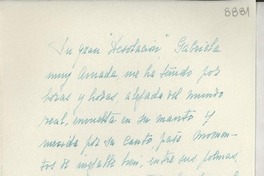 8881
Su gran "Desolación" Gabriela
muy Amada me ha tenido por
horas y horas, alejada del mundo
real, envuelta en su manto y
mecida por su canto, paso momen-
tos de inefable bien, entre sus poemas,